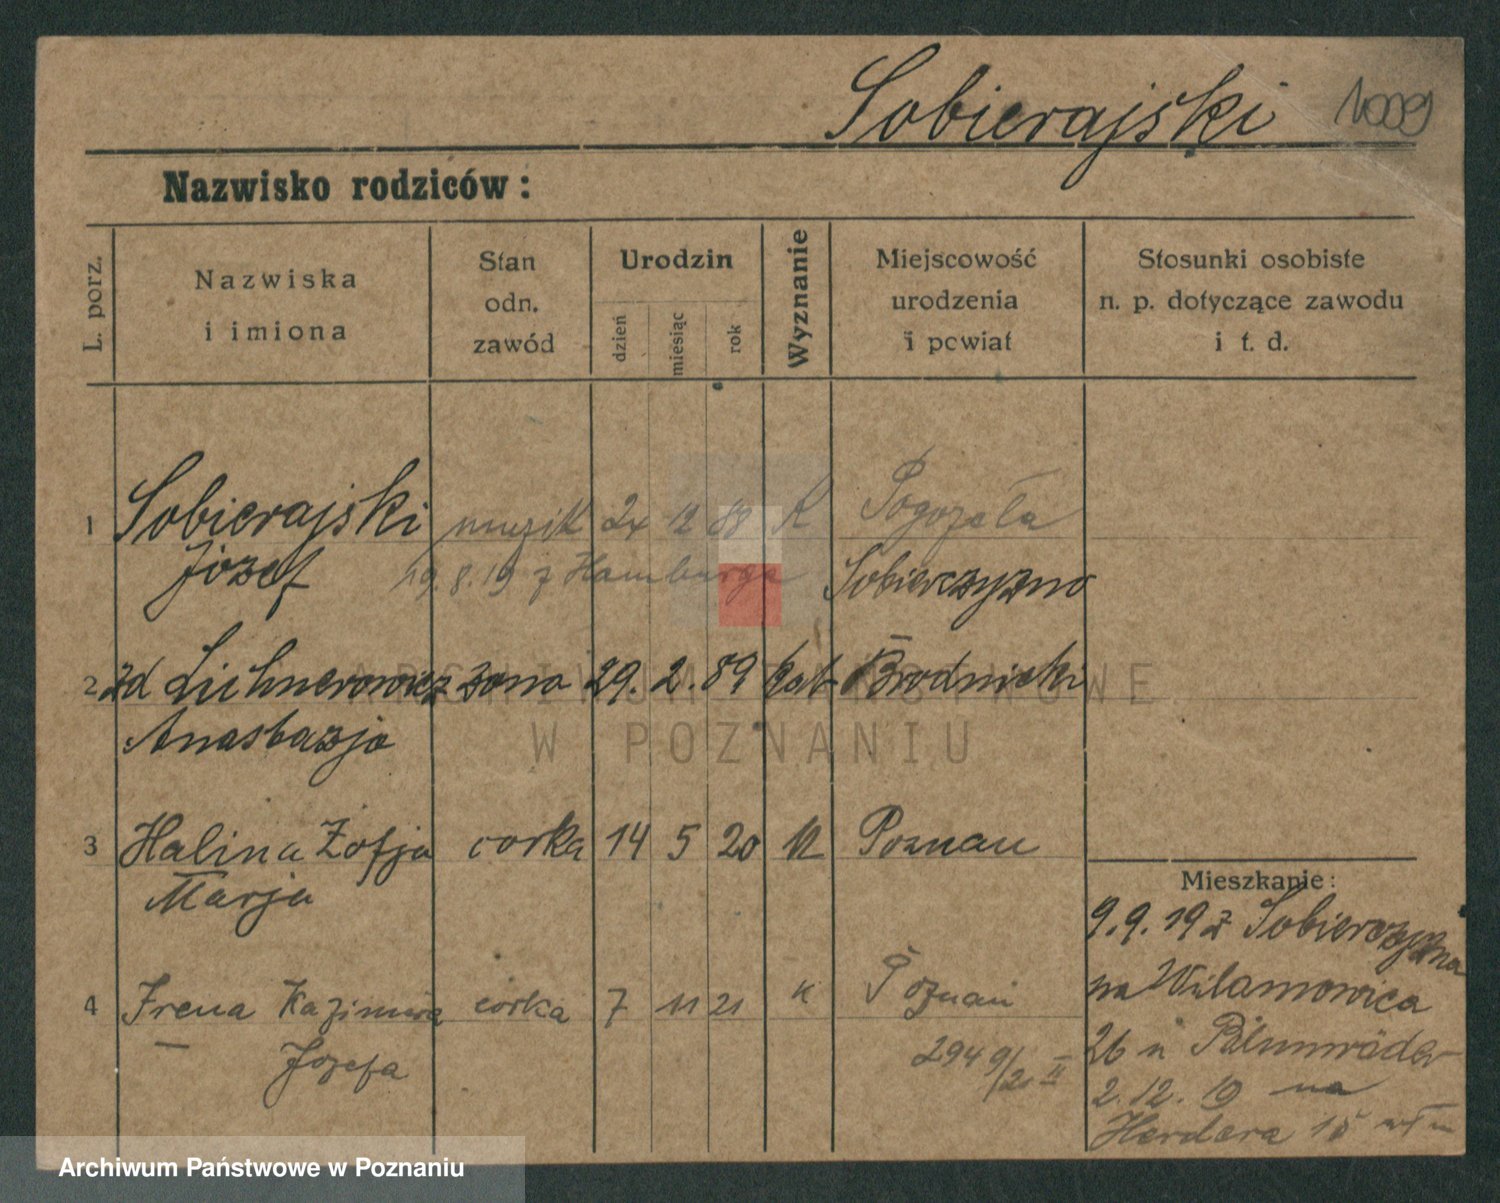 Sobierajski 1009
Nazwisko rodziców:
L. porz.
Nazwiska
i imiona
Stan
odn.
zawód
Urodzin
dzień
miesiąc
rok
Wyznanie
Miejscowość
urodzenia
i powiat
Stosunki osobiste
n. p. dotyczące zawodu
i t. d.
1 Sobierajski muzik 24 12 88 K Pogozela
Józef 29.8.19 z Hamburga Sobierczyzno
2 zd Lichnerowicz zona 29. 2. 89 kat Brodnicki
Anastazja
3 Halina Zofja corka 14 5 20 K Poznan
Marja
4 Irena Kazimira corka 7 11 21 K Poznań
Józefa 2949/21 II
Mieszkanie:
9.9.19 z Sobierczyzna
na Wilamowica
26 u
2.12.19 na
Herdera 15
ARCHIWUM PAŃSTWOWE
W POZNANIU
Archiwum Państwowe w Poznaniu